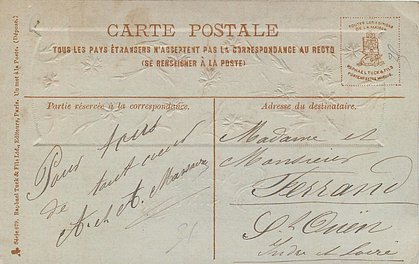 CARTE POSTALE
TOUS LES PAYS ÉTRANGERS N'ACCEPTENT PAS LA CORRESPONDANCE AU RECTO
(SE RENSEIGNER À LA POSTE)
Partie réservée à la correspondance.
Adresse du destinataire.
Pour tous
de tout cœur
A. et A.
Madame et
Monsieur
Ferrand
St Ouën
Indre et Loire
Série 679. Raphael Tuck & Fils Ltd., Editeurs, Paris. Un mot à la Poste. (Déposé.)